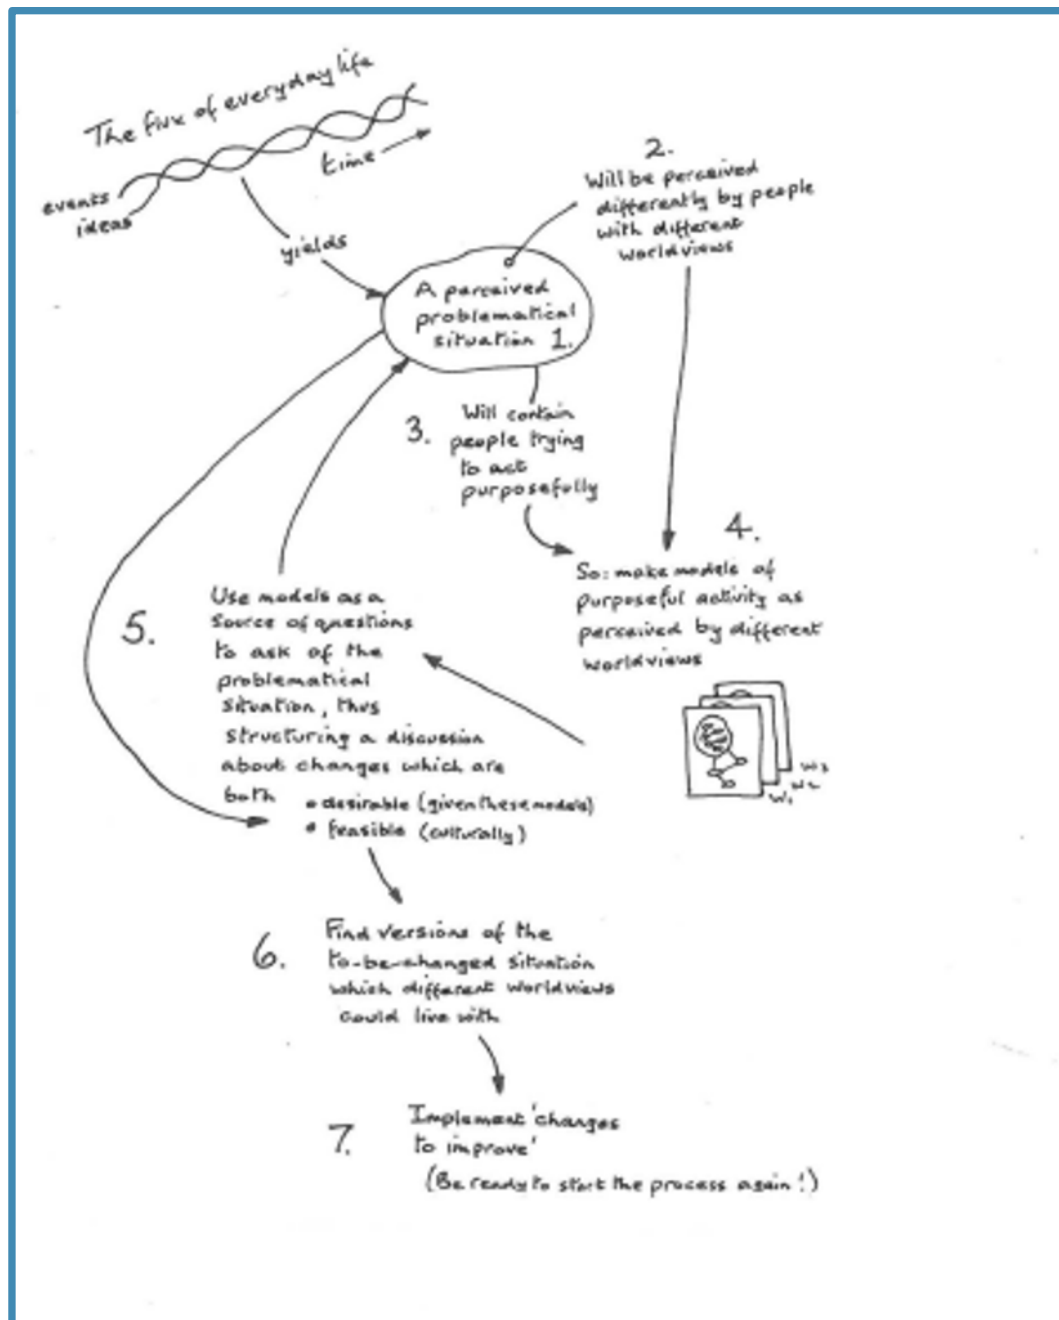 The flux of everyday life
events
ideas
time
yields
A perceived
problematical
situation 1.
2.
Will be perceived
differently by people
with different
worldviews
3.
Will contain
people trying
to act
purposefully
4.
So: make models of
purposeful activity as
perceived by different
worldviews
W1
W2
W3
5.
Use models as a
Source of questions
to ask of the
problematical
situation, thus
structuring a discussion
about changes which are
both
• desirable (given these models)
• feasible (culturally)
6.
Find versions of the
to-be-changed situation
which different worldviews
could live with
7.
Implement 'changes
to improve'
(Be ready to start the process again!)